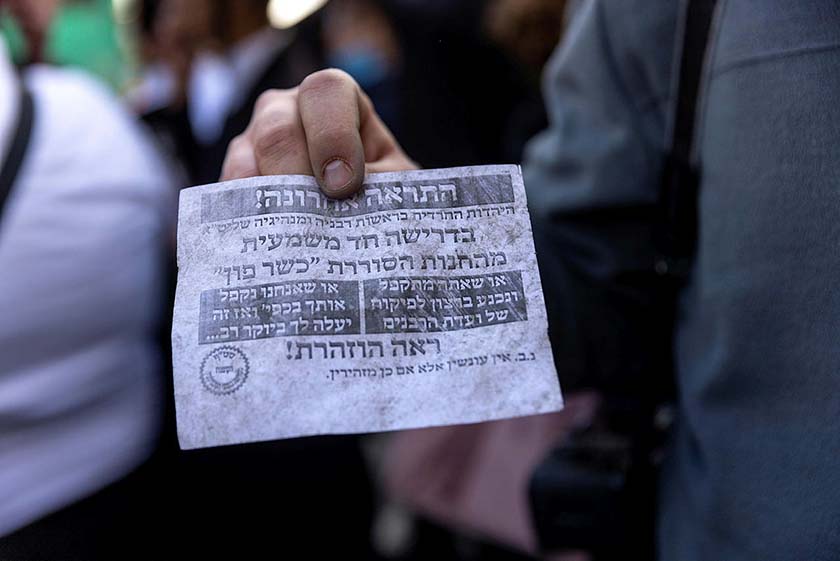 התראה אחרונה!
היהדות החרדית בראשות רבניה ומנהיגיה שליט"א
בדרישה חד משמעית
מהחנות הסוררת "כשר פון"
או שאתה מתקפל
ונכנע ברצון לפיקוח
של ועדת הרבנים
או שאנחנו נקפל
אותך בכפי' ואז זה
יעלה לך ביוקר רב...
ראה הוזהרת!
נ.ב. אין עונשין אלא אם כן מזהירין.